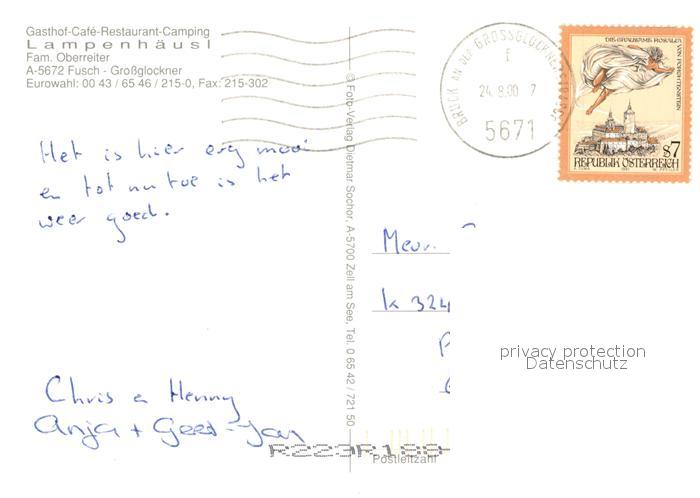 Gasthof-Café-Restaurant-Camping
Lampenhäusl
Fam. Oberreiter
A-5672 Fusch - Großglockner
Eurowahl: 00 43 / 65 46 / 215-0, Fax: 215-302
Het is hier erg mooi
en tot nu toe is het
weer goed.
Chris en Henny
Anja + Geert-Jan
© Foto-Verlag Dietmar Sochor, A-5700 Zell am See, Tel. 0 65 42 / 721 50
BRUCK AN DER GROSSGLOCKNERSTRASSE
f
24.8.00 7
5671
DIE GRAUSAME ROSALIA VON FORCHTENSTEIN
S7
REPUBLIK ÖSTERREICH
Mevr.
K 324
privacy protection
Datenschutz
Postleitzahl